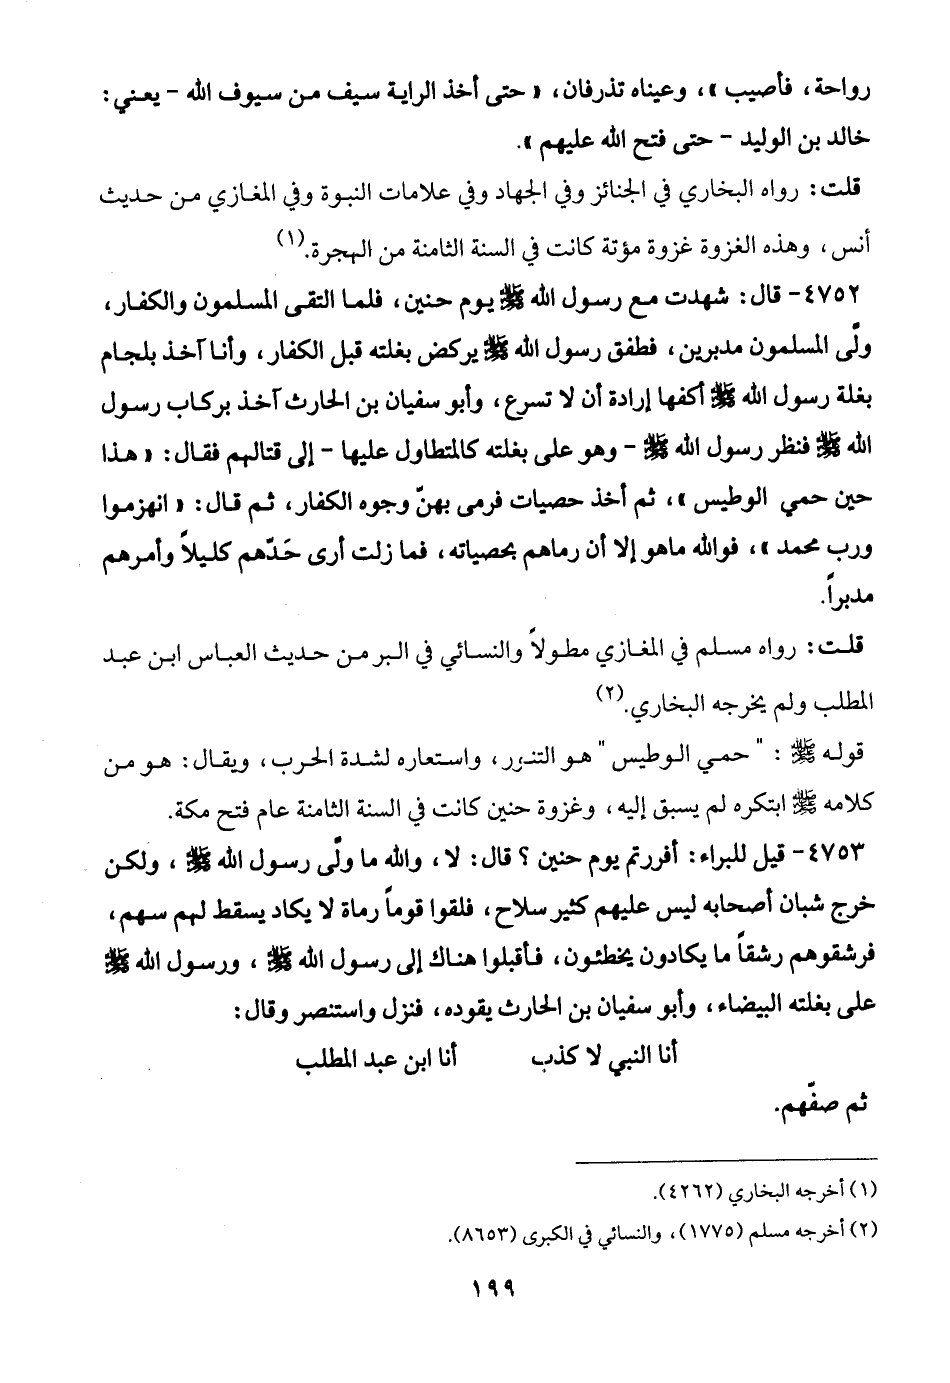 رواحة، فأصيب »، وعيناه تذرفان، « حتى أخذ الراية سيف من سيوف الله – يعني:
خالد بن الوليد – حتى فتح الله عليهم ».
قلت: رواه البخاري في الجنائز وفي الجهاد وفي علامات النبوة وفي المغازي من حديث
أنس، وهذه الغزوة غزوة مؤتة كانت في السنة الثامنة من الهجرة.(١)
٤٧٥٢- قال: شهدت مع رسول الله ﷺ يوم حنين، فلما التقى المسلمون والكفار،
ولّى المسلمون مدبرين، فطفق رسول الله ﷺ يركض بغلته قبل الكفار، وأنا آخذ بلجام
بغلة رسول الله ﷺ أكفها إرادة أن لا تسرع، وأبو سفيان بن الحارث آخذ بركاب رسول
الله ﷺ فنظر رسول الله ﷺ – وهو على بغلته كالمتطاول عليها – إلى قتالهم فقال: « هذا
حين حمي الوطيس »، ثم أخذ حصيات فرمى بهنّ وجوه الكفار، ثم قال: « انهزموا
ورب محمد »، فوالله ماهو إلا أن رماهم بحصياته، فما زلت أرى حَدّهم كليلاً وأمرهم
مدبراً.
قلت: رواه مسلم في المغازي مطولاً والنسائي في البر من حديث العباس ابن عبد
المطلب ولم يخرجه البخاري.(٢)
قوله ﷺ : " حمي الوطيس " هو التنور، واستعاره لشدة الحرب، ويقال: هو من
كلامه ﷺ ابتكره لم يسبق إليه، وغزوة حنين كانت في السنة الثامنة عام فتح مكة.
٤٧٥٣- قيل للبراء: أفررتم يوم حنين ؟ قال: لا، والله ما ولّى رسول الله ﷺ ، ولكن
خرج شبان أصحابه ليس عليهم كثير سلاح، فلقوا قوماً رماة لا يكاد يسقط لهم سهم،
فرشقوهم رشقاً ما يكادون يخطئون، فأقبلوا هناك إلى رسول الله ﷺ ، ورسول الله ﷺ
على بغلته البيضاء، وأبو سفيان بن الحارث يقوده، فنزل واستنصر وقال:
أنا النبي لا كذب أنا ابن عبد المطلب
ثم صفّهم.
(١) أخرجه البخاري (٤٢٦٢).
(٢) أخرجه مسلم (١٧٧٥)، والنسائي في الكبرى (٨٦٥٣).
١٩٩